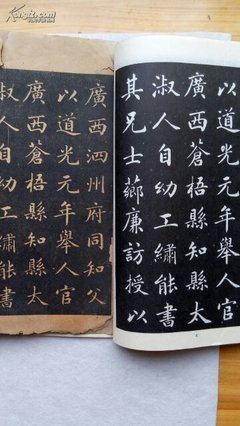 以道光元年舉人官
廣西蒼梧縣知縣太
淑人自幼工繡能書
其兄士薌廉訪授以
廣西泗州府同知父
以道光元年舉人官
廣西蒼梧縣知縣太
淑人自幼工繡能書